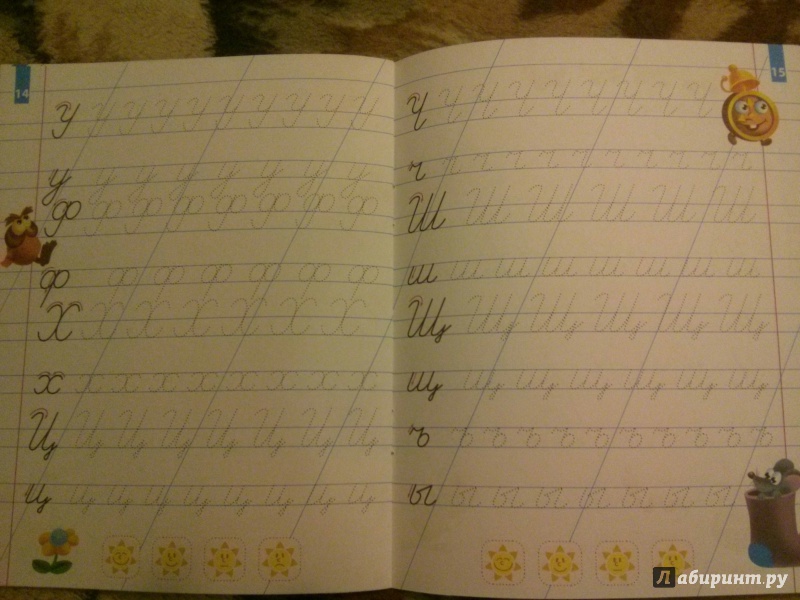 14
У У У У У У У У У У
у у у у у у у у
Ф Ф Ф Ф Ф Ф Ф Ф
ф ф ф ф ф ф ф
Х Х Х Х Х Х Х
х х х х х х х х х
Ц Ц Ц Ц Ц Ц Ц Ц
ц ц ц ц ц ц ц ц ц
15
Ч Ч Ч Ч Ч Ч Ч Ч Ч
ч ч ч ч ч ч ч ч ч ч ч
Ш Ш Ш Ш Ш Ш
ш ш ш ш ш ш ш ш
Щ Щ Щ Щ Щ Щ
щ щ щ щ щ щ щ
ъ ъ ъ ъ ъ ъ ъ ъ ъ ъ ъ
ы ы ы ы ы ы ы ы
Лабиринт.ру